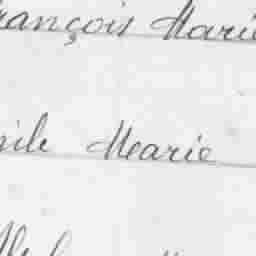 rançois Marie
nile Marie